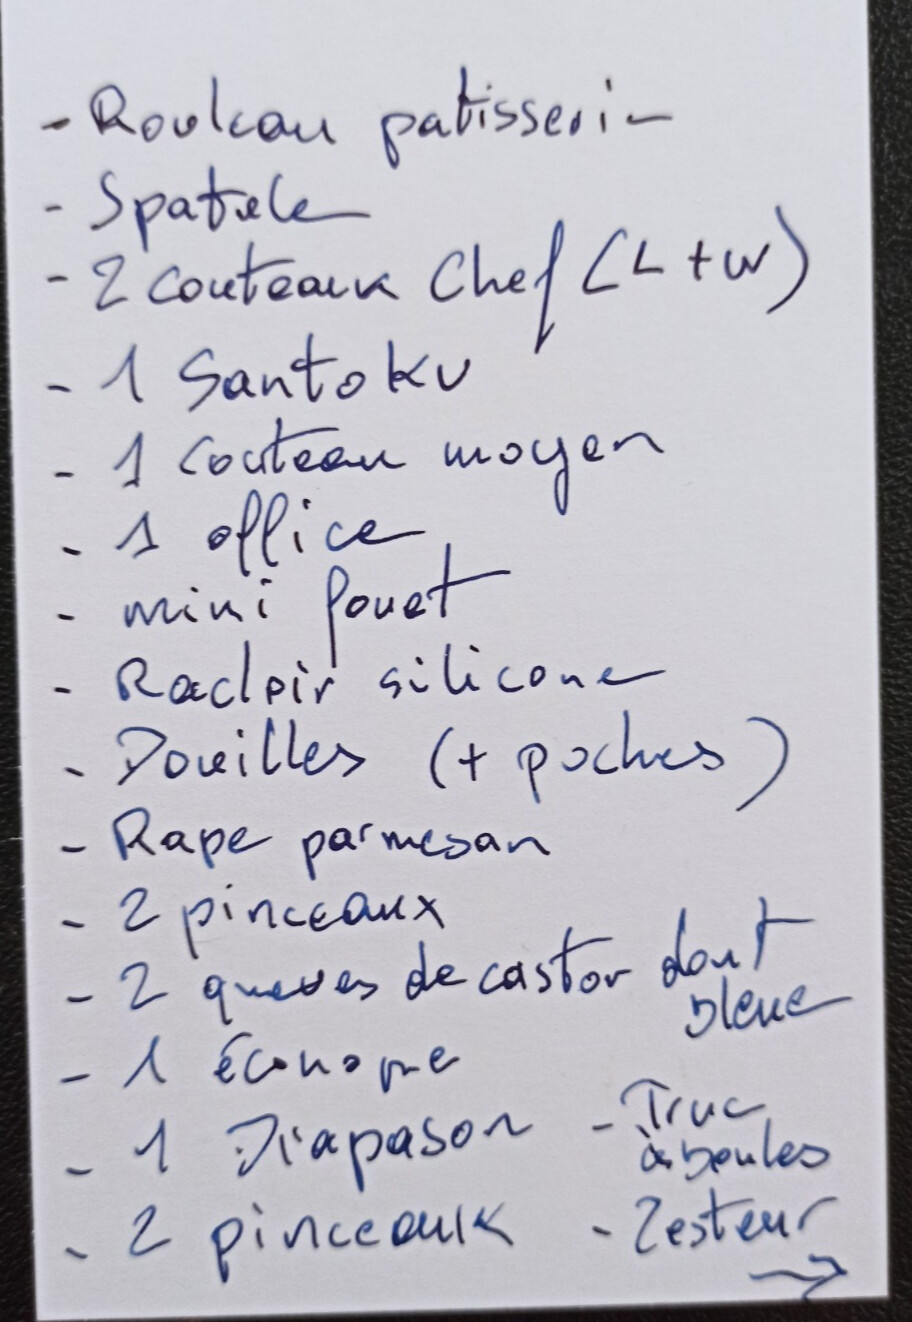 - Rouleau patisserie
- Spatule
- 2 couteaux Chef (L + W)
- 1 Santoku
- 1 couteau moyen
- 1 office
- mini fouet
- Racloir silicone
- Douilles (+ poches)
- Rape parmesan
- 2 pinceaux
- 2 queues de castor dont
bleue
- 1 économe
- 1 Diapason
- 2 pinceaux
- Truc
à boules
- Zesteur
→